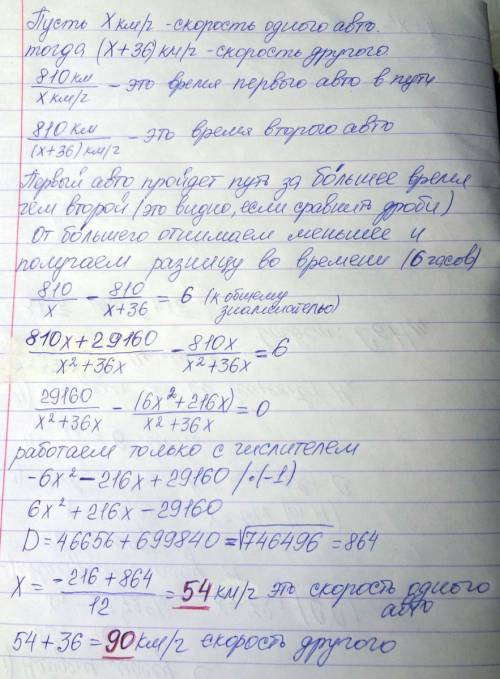 Пусть X км/г - скорость одного авто.
тогда (X+36) км/г - скорость другого
810 км / X км/г - это время первого авто в пути
810 км / (x+36) км/г - это время второго авто
Первый авто пройдет путь за бо́льшее время
чем второй (это видно, если сравнить дроби)
От бо́льшего отнимаем меньшее и
получаем разницу во времени (6 часов)
810/x - 810/x+36 = 6 (к общему знаменателю)
810x+29160 / x²+36x - 810x / x²+36x = 6
29160 / x²+36x - (6x²+216x) / x²+36x = 0
работаем только с числителем
-6x² - 216x + 29160 /·(-1)
6x² + 216x - 29160
D = 46656 + 699840 = √746496 = 864
X = -216 + 864 / 12 = 54 км/г это скорость одного авто
54 + 36 = 90 км/г скорость другого